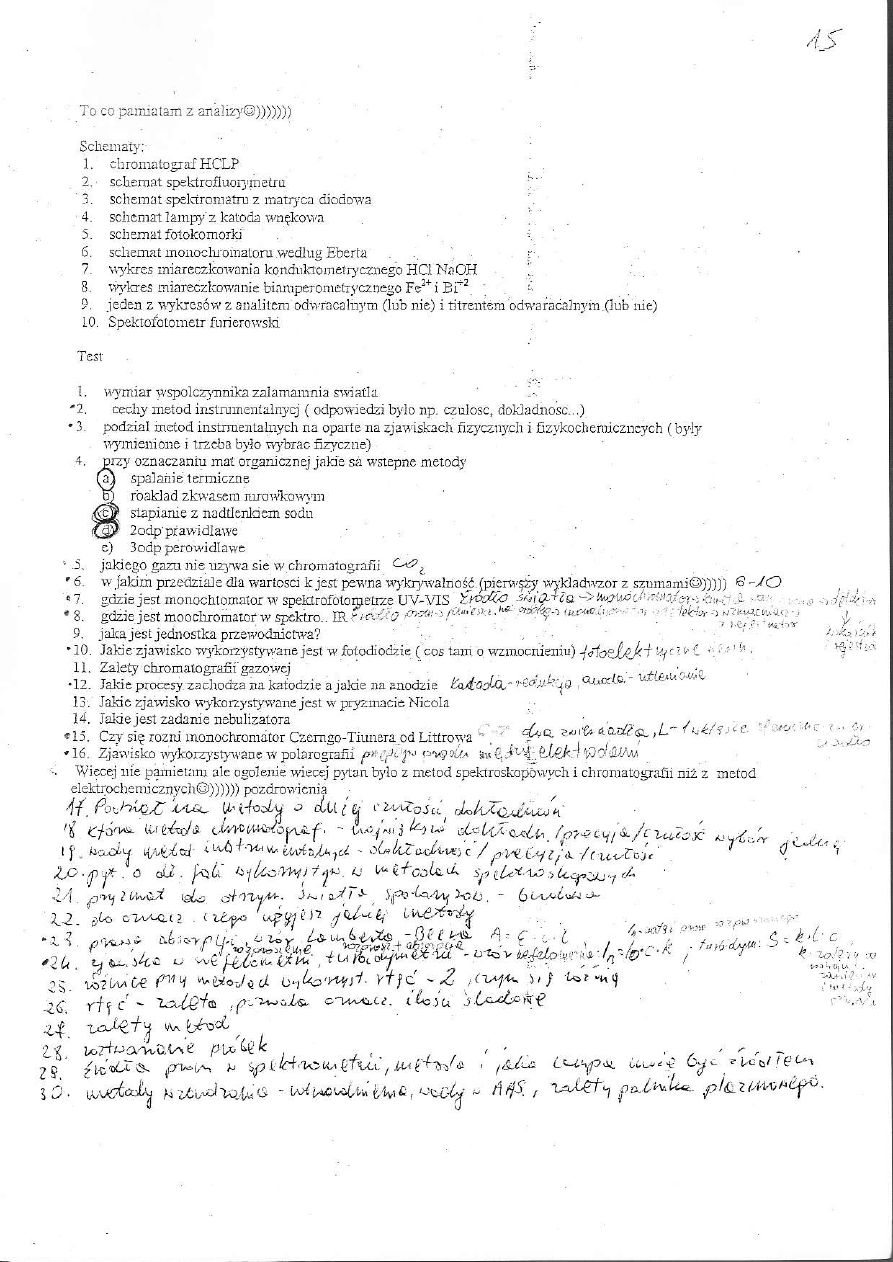 15
To co pamiatam z analizy☺)))))))
Schematy:
1. chromatograf HCLP
2. schemat spektrofluorymetru
3. schemat spektromatru z matryca diodowa
4. schemat lampy z katoda wnękowa
5. schemat fotokomorki
6. schemat monochromatoru według Eberta
7. wykres miareczkowania konduktometrycznego HCl NaOH
8. wykres miareczkowanie biamperometrycznego Fe²⁺ i Br⁻²
9. jeden z wykresów z analitem odwracalnym (lub nie) i titrentem odwaracalnym (lub nie)
10. Spektofotometr furierowski
Test
1. wymiar wspolczynnika zalamamnia swiatla
2. cechy metod instrumentalnycj ( odpowiedzi było np. czulosc, dokladnosc...)
3. podzial metod instrmentalnych na oparte na zjawiskach fizycznych i fizykochemiczncych ( były
wymienione i trzeba było wybrac fizyczne)
4. przy oznaczaniu mat organicznej jakie sa wstepne metody
a) spalanie termiczne
b) roaklad zkwasem mrowkowym
c) stapianie z nadtlenkiem sodu
d) 2odp prawidlawe
e) 3odp perowidlawe
5. jakiego gazu nie używa sie w chromatografii CO₂
6. w jakim przedziale dla wartosci k jest pewna wykrywalność (pierwszy wykladwzor z szumami☺))))) 6-10
7. gdzie jest monochtomator w spektrofotometrze UV-VIS źródło światła → monochromator
8. gdzie jest moochromator w spektro.. IR źródło
9. jaka jest jednostka przewodnictwa?
10. Jakie zjawisko wykorzystywane jest w fotodiodzie ( cos tam o wzmocnieniu) fotoelektryczne
11. Zalety chromatografii gazowej
12. Jakie procesy zachodza na katodzie a jakie na anodzie Katoda - redukcja, anoda - utlenianie
13. Jakie zjawisko wykorzystywane jest w pryzmacie Nicola
14. Jakie jest zadanie nebulizatora
15. Czy się rozni monochromator Czerngo-Tiunera od Littrowa C-T dwa zwierciadła, L-1
16. Zjawisko wykorzystywane w polarografii przepływ prądu między elektrodami
Wiecej nie pamietam ale ogolenie wiecej pytan było z metod spektroskopowych i chromatografii niż z metod
elektrochemicznych☺)))))) pozdrowienia
17. metody o dużej czułości, dokładności
18. która metoda chromatograf. - najniższa dokładn./precyzja/czułość wybór jednej
19. wady metod instrumentalnych - dokładność / precyzja / czułość
20. pyt. o dł. fali wykorzystyw. w metodach spektroskopowych
21. pryzmat do otrzym. światła spolaryzow.
22. do oznacz. czego użyjesz jakiej metody
23. prawo absorpcji, wzór Lamberta-Beera A = ε·c·l
24. zjawisko w nefelometrii, turbidymetria - wzór ; turbidym: S = k·l·c
rozproszenie rozprosz + absorpcja
25. różnice przy metodach wykorzyst. rtęć - 2, czym się różnią
26. rtęć - zaleta, pozwala oznacz. ilości śladowe
27. zalety metod
28. roztwarzanie próbek
29. źródła prom w spektrometrii, metoda i jaka lampa może być źródłem
30. metody wzbudzania - wady w AAS, zalety palnika plazmowego.